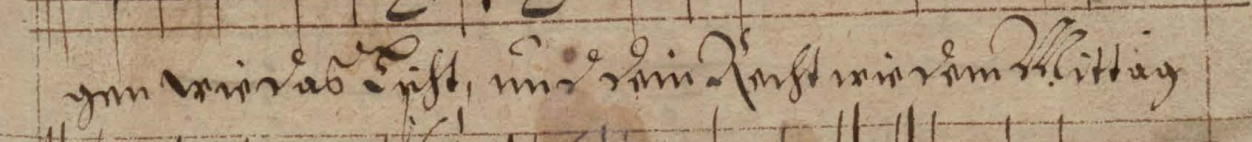 gen wie das Licht, und dein Recht wie dem Mittag